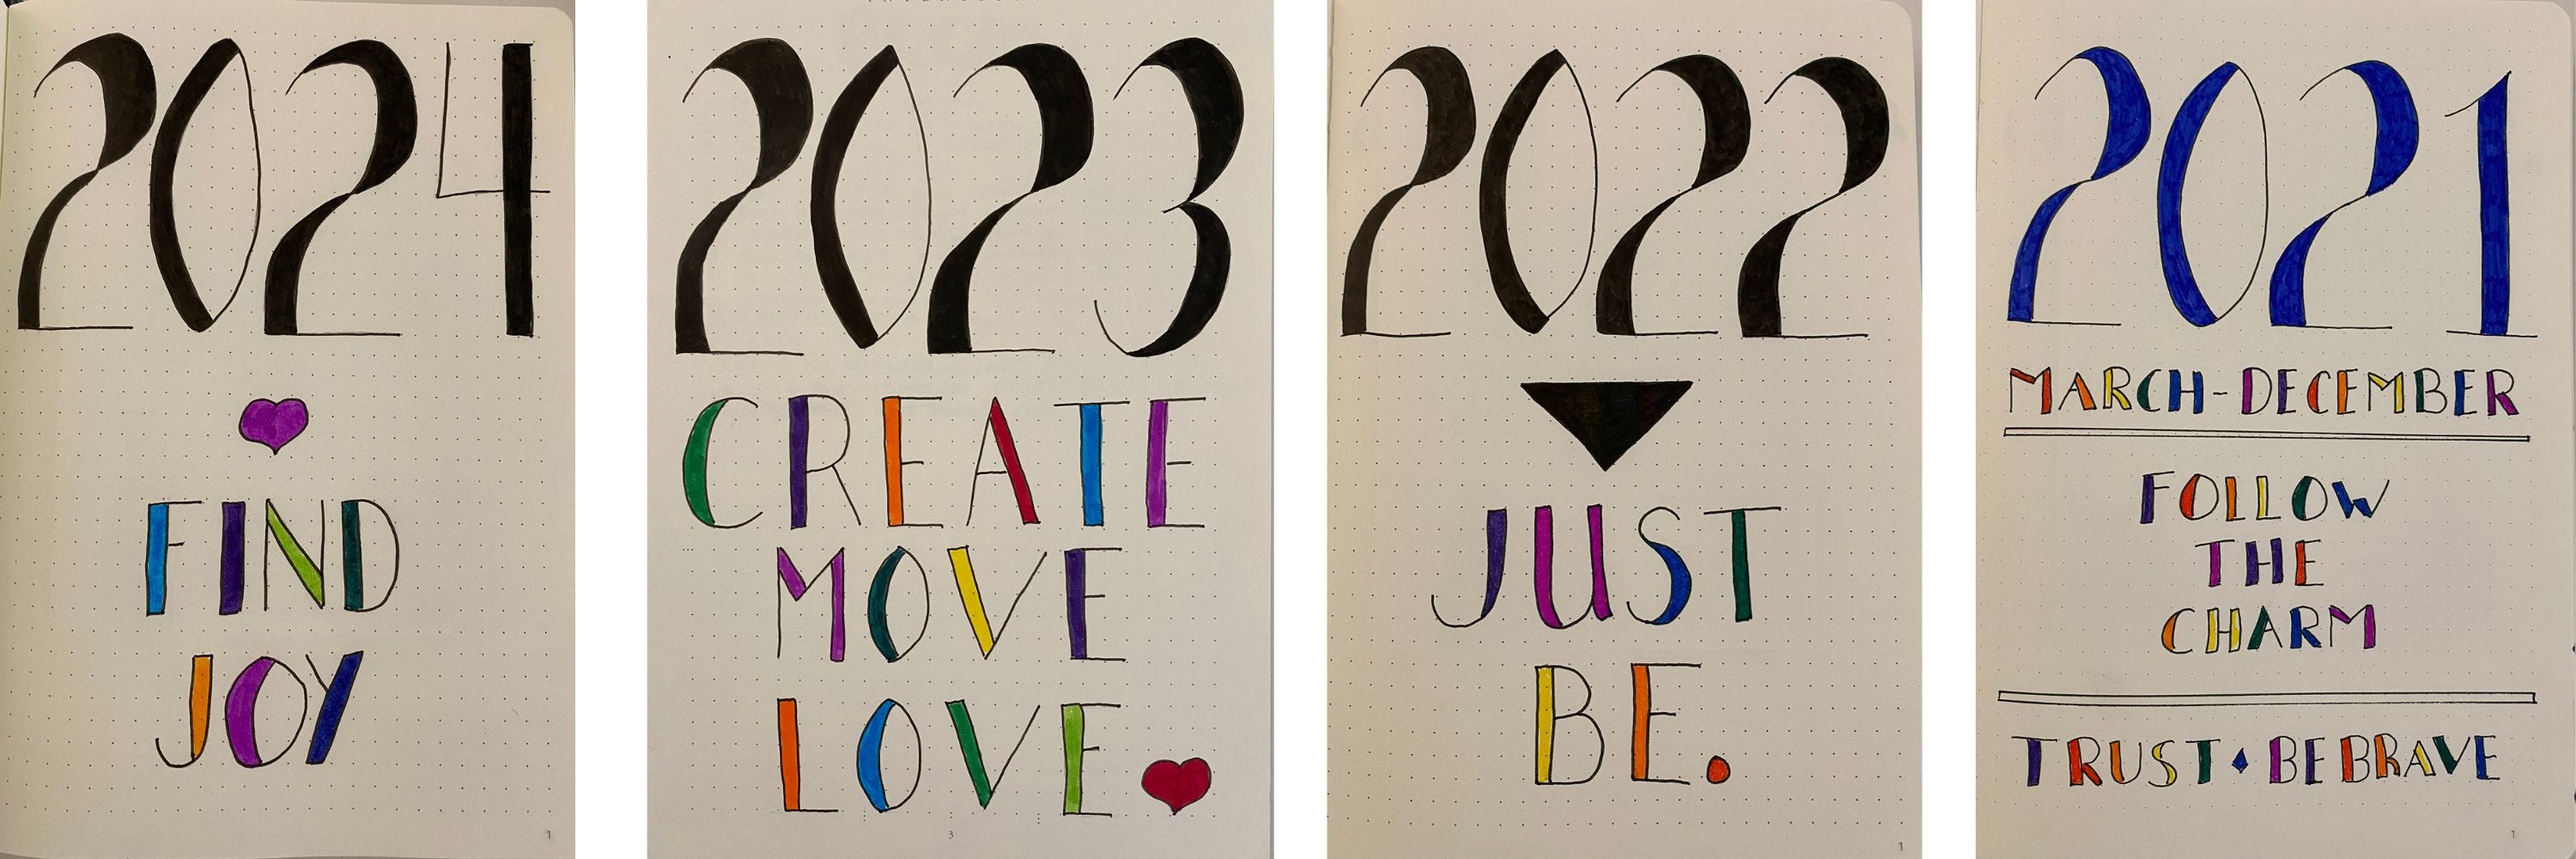 2024
FIND
JOY
1
2023
CREATE
MOVE
LOVE
3
2022
JUST
BE.
1
2021
MARCH-DECEMBER
FOLLOW
THE
CHARM
TRUST ♦ BE BRAVE
1